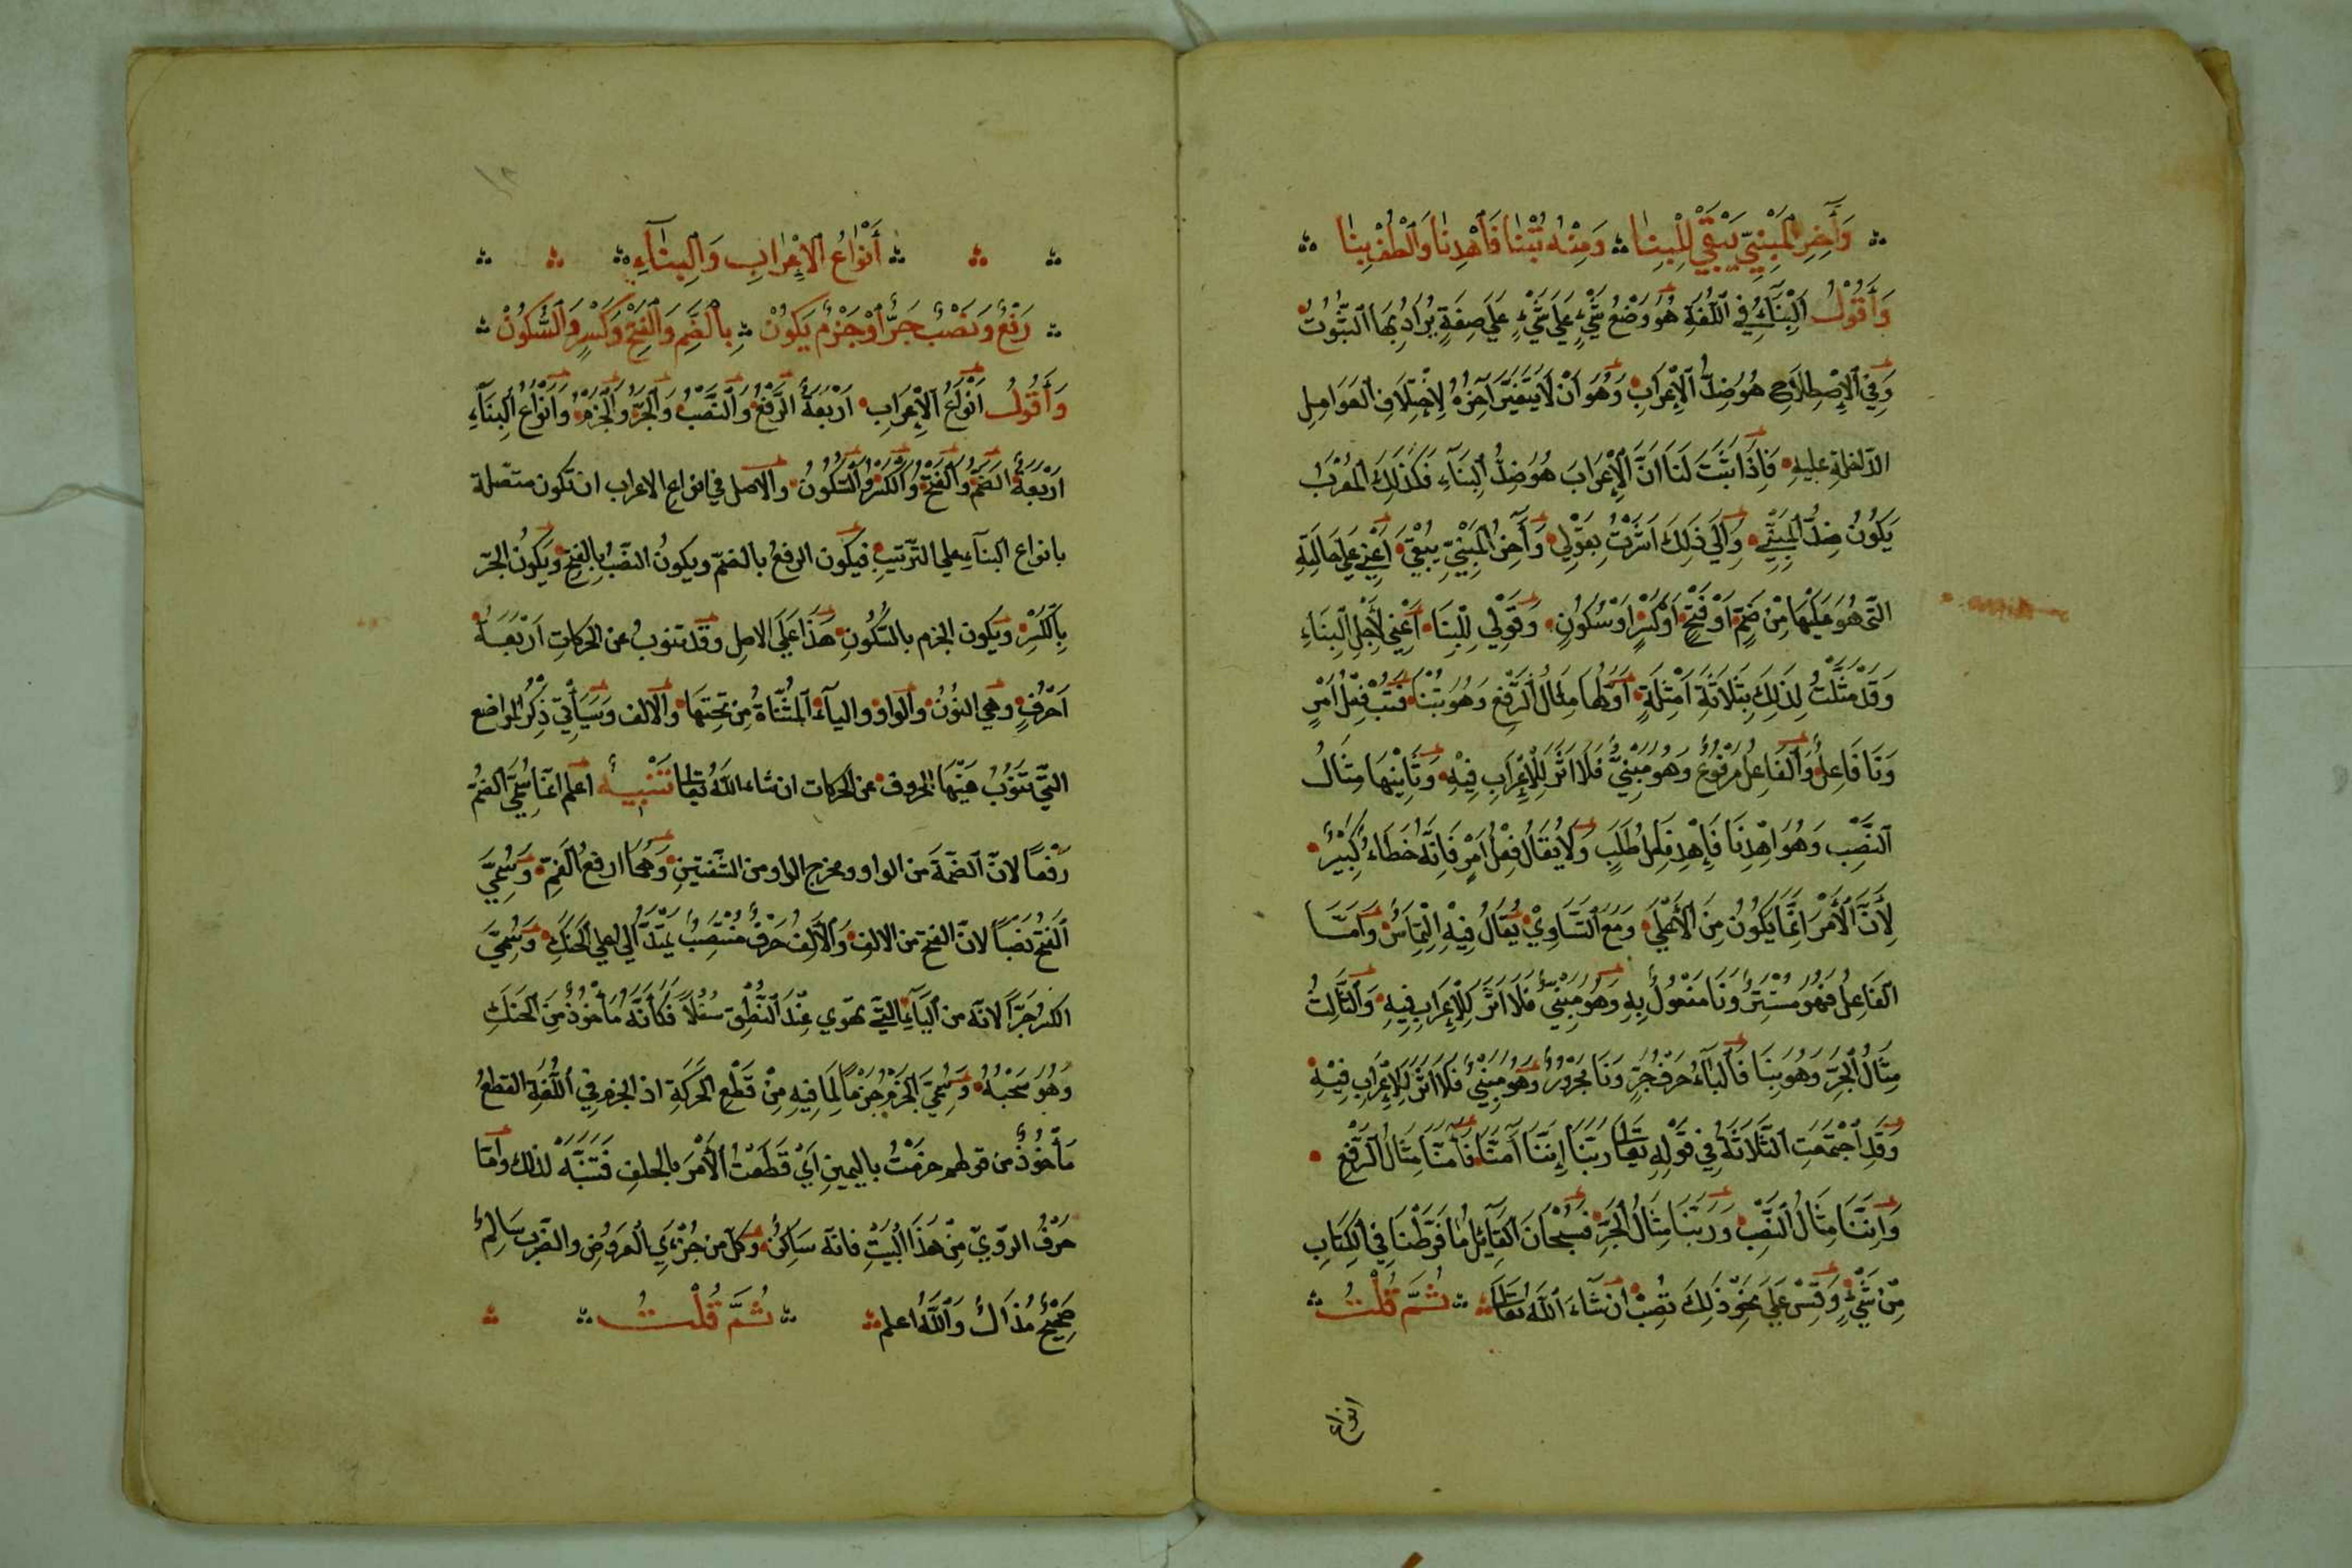 وَآخِرُ الْمَبْنِيِّ يَبْقَى لِلْبِنَا ۞ وَمِنْهُ تُبْنَا فَاهْدِنَا وَالْطُفْ بِنَا
وَأَقُولُ الْبِنَآءُ فِي اللُّغَةِ هُوَ وَضْعُ شَيْءٍ عَلَى شَيْءٍ عَلَى صِفَةٍ يُرَادُ بِهَا الثُّبُوتُ
وَفِي الْإِصْطِلَاحِ هُوَ ضِدُّ الْإِعْرَابِ وَهُوَ أَنْ لَا يَتَغَيَّرَ آخِرُهُ لِاخْتِلَافِ الْعَوَامِلِ
الدَّاخِلَةِ عَلَيْهِ فَإِذَا ثَبَتَ لَنَا أَنَّ الْإِعْرَابَ هُوَ ضِدُّ الْبِنَآءِ فَكَذَلِكَ الْمُعْرَبُ
يَكُونُ ضِدُّ الْمَبْنِيِّ وَإِلَى ذَلِكَ أَشَرْتُ بِقَوْلِي وَآخِرُ الْمَبْنِيِّ يَبْقَى أَعْنِي عَلَى حَالَتِهِ
الَّتِي هُوَ عَلَيْهَا مِنْ ضَمٍّ أَوْ فَتْحٍ أَوْ كَسْرٍ أَوْ سُكُونٍ وَقَوْلِي لِلْبِنَا أَعْنِي لِأَجْلِ الْبِنَاءِ
وَقَدْ مَثَّلْتُ لِذَلِكَ بِثَلَاثَةِ أَمْثِلَةٍ أَوَّلُهَا مِثَالُ الرَّفْعِ وَهُوَ تُبْنَا فَتُبْ فِعْلُ أَمْرٍ
وَنَا فَاعِلٌ وَالْفَاعِلُ مَرْفُوعٌ وَهُوَ مَبْنِيٌّ فَلَا أَثَرَ لِلْإِعْرَابِ فِيْهِ وَثَانِيْهَا مِثَالُ
النَّصْبِ وَهُوَ اهْدِنَا فَاهْدِ فِعْلُ طَلَبٍ وَلَا يُقَالُ فِعْلُ أَمْرٍ فَإِنَّهُ خَطَاءٌ كَبِيْرٌ
لِأَنَّ الْأَمْرَ إِنَّمَا يَكُونُ مِنَ الْأَعْلَى وَمَعَ التَّسَاوِيْ يُقَالُ فِيْهِ الْتِمَاسٌ وَأَمَّا
الْفَاعِلُ فَهُوَ مُسْتَتِرٌ وَنَا مَفْعُولٌ بِهِ وَهُوَ مَبْنِيٌّ فَلَا أَثَرَ لِلْإِعْرَابِ فِيهِ وَالثَّالِثُ
مِثَالُ الْجَرِّ وَهُوَ بِنَا فَالْبَآءُ حَرْفُ جَرٍّ وَنَا مَجْرُورٌ وَهُوَ مَبْنِيٌّ فَلَا أَثَرَ لِلْإِعْرَابِ فِيْهِ
وَقَدِ اجْتَمَعَتِ الثَّلَاثَةُ فِي قَوْلِهِ تَعَالَى رَبَّنَا إِنَّنَا آمَنَّا فَآمَنَّا مِثَالُ الرَّفْعِ
وَإِنَّنَا مِثَالُ النَّصْبِ وَرَبَّنَا مِثَالُ الْجَرِّ فَسُبْحَانَ الْقَآئِلِ مَا فَرَّطْنَا فِي الْكِتَابِ
مِنْ شَيْءٍ وَقِسْ عَلَى نَحْوِ ذَلِكَ تُصِبْ إِنْ شَآءَ اللّٰهُ تَعَالَى ۞ ثُمَّ قُلْتُ
انواع
أَنْوَاعُ الْإِعْرَابِ وَالْبِنَآءِ
رَفْعٌ وَنَصْبٌ جَرٌّ أَوْ جَزْمٌ يَكُونْ ۞ بِالضَّمِّ وَالْفَتْحِ وَكَسْرٍ وَالسُّكُونْ
وَأَقُولُ أَنْوَاعُ الْإِعْرَابِ أَرْبَعَةٌ الرَّفْعُ وَالنَّصْبُ وَالْجَرُّ وَالْجَزْمُ وَأَنْوَاعُ الْبِنَآءِ
أَرْبَعَةٌ الضَّمُّ وَالْفَتْحُ وَالْكَسْرُ وَالسُّكُونُ وَالْاَصل في انواع الاعراب ان تكون متّصلة
بانواع البنآء على التّرتيبِ فيكون الرفعُ بالضمّ ويكونُ النصْبُ بالفتحِ ويكونُ الجرّ
بِالْكَسْرِ ويكون الجزم بالسّكُونِ هَذَا عَلَى الاصلِ وقد تنوبُ عن الحركاتِ أَرْبَعَةُ
أَحْرُفٍ وهي النُونُ والواو واليآءُ الْمُثَنَّاةُ مِنْ تَحْتِهَا والالف وَسَيَأْتِي ذِكْرُ المواضع
الَّتِي تَنُوبُ فِيْهَا الحروف عن الحركات ان شاء اللّٰهُ تعالى تَنْبِيهٌ اعلم انّما سُمّيَ الضمُّ
رَفْعًا لانّ الضمّةَ من الواو ومخرج الواو من الشّفتينِ وَهُمَا ارفعُ الْفَمِ وَسُمِّيَ
الْفَتْحُ نَصْبًا لانّ الفتحَ من الالفِ وَالْأَلِفُ حَرْفٌ مُنْتَصِبٌ يَمْتَدُّ إِلَى اعلى الْحَنَكِ وَسُمِّيَ
الكسرُ جَرًّا لانّه من الْيَآءِ الّتي تهوي عِنْدَ النُّطْقِ سُفْلاً فَكَأَنَّهُ مَأْخُوذٌ مِنَ الْحَنَكِ
وَهُوَ سَحْبُهُ وَسُمِّيَ الْجَزْمُ جَزْمًا لِمَا فِيهِ مِنْ قَطْعِ الْحَرَكَةِ اذ الجزم فِي اللُّغَةِ القطعُ
مَأْخُوذٌ من قولهم جزمْتُ باليمينِ أَيْ قَطَعْتُ الْأَمْرَ بالحلفِ فَتَنَبَّهْ لذلك وَأَمَّا
حَرْفُ الرويّ مِنْ هَذَا الْبَيْتِ فانّه سَاكِنٌ وكلّ من جُزْءَيِ الْعَرُوضِ والضّرب سَالِمٌ
صَحِيْحٌ مُذَالٌ وَاللّٰهُ اعلم ۞ ثُمَّ قُلْتُ